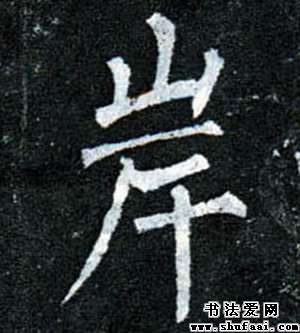 岸
书法爱网
www.shufaai.com